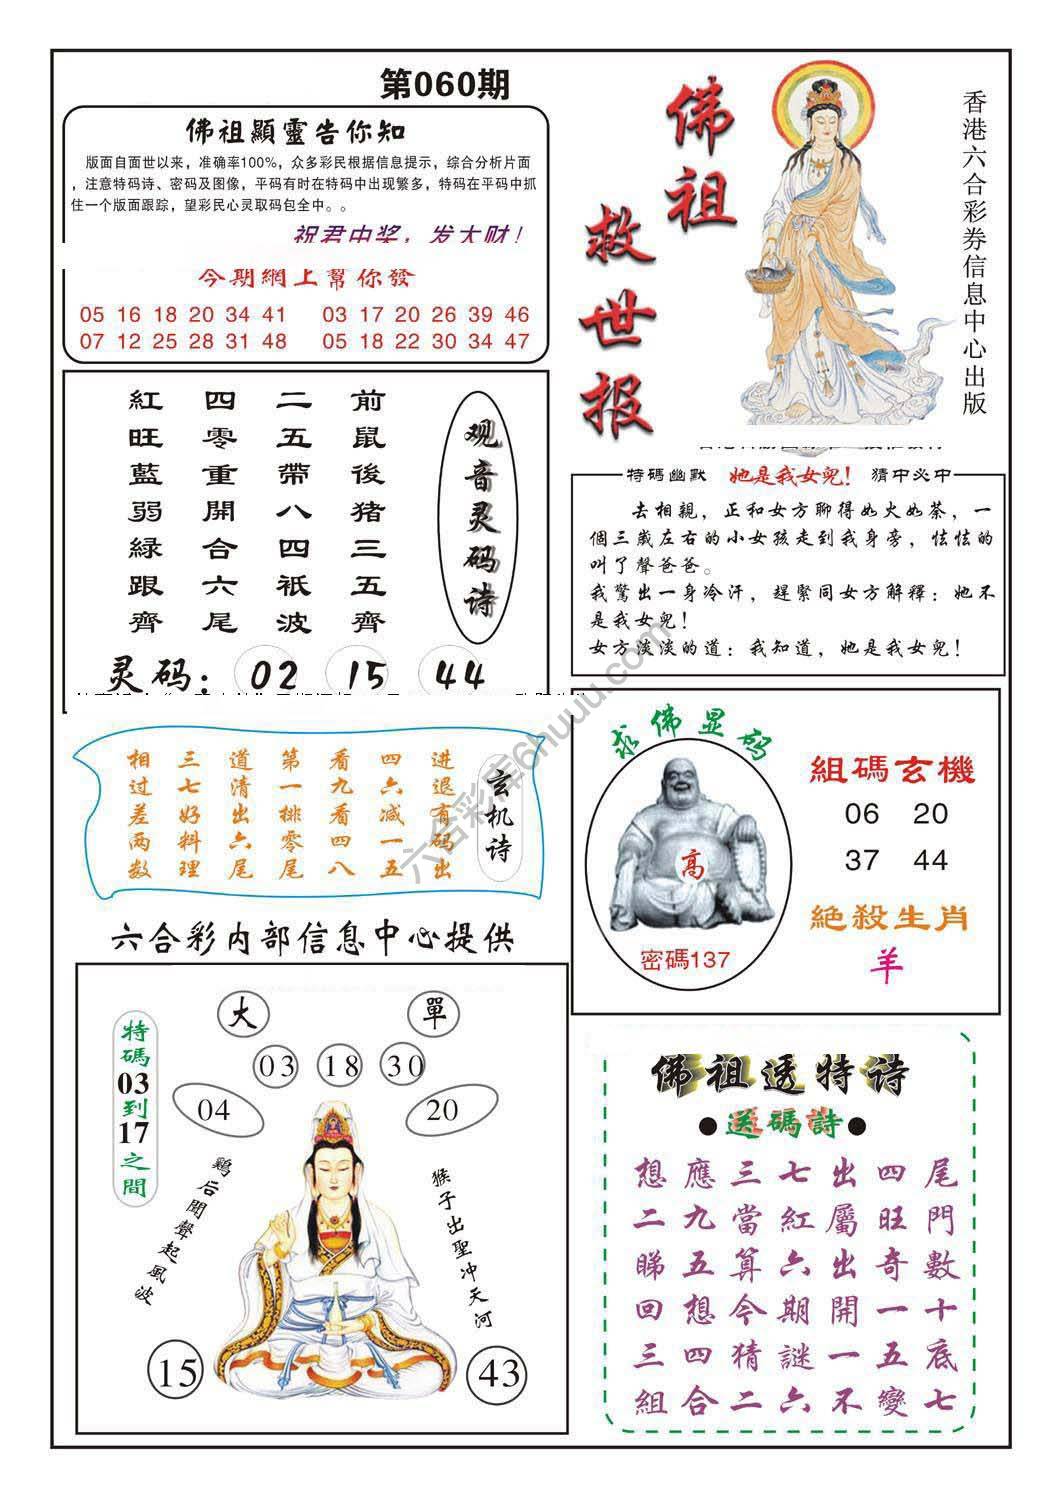 第060期
佛祖顯靈告你知
版面自面世以来，准确率100%，众多彩民根据信息提示，综合分析片面
，注意特码诗、密码及图像，平码有时在特码中出现繁多，特码在平码中抓
住一个版面跟踪，望彩民心灵取码包全中。。
祝君中奖，发大财！
今期網上幫你發
05 16 18 20 34 41 03 17 20 26 39 46
07 12 25 28 31 48 05 18 22 30 34 47
佛祖
救世报
香港六合彩券信息中心出版
观音灵码诗
前鼠後猪三五齊
二五帶八四祇波
四零重開合六尾
紅旺藍弱緑跟齊
灵码：02 15 44
特碼幽默 她是我女兒！ 猜中必中
去相親，正和女方聊得如火如荼，一
個三歲左右的小女孩走到我身旁，怯怯的
叫了聲爸爸。
我驚出一身冷汗，趕緊同女方解釋：她不
是我女兒！
女方淡淡的道：我知道，她是我女兒！
玄机诗
进退有码出
四六减一五
看九看四八
第一排零尾
道清出六尾
三七好料理
相过差两数
求佛显码
高
密碼137
組碼玄機
06 20
37 44
絶殺生肖
羊
六合彩内部信息中心提供
特碼03到17之間
大 單
03 18 30
04 20
鷄后聞聲起風波
猴子出聖冲天河
15 43
佛祖透特诗
●送碼詩●
想應三七出四尾
二九當紅屬旺門
睇五算六出奇數
回想今期開一十
三四猜謎一五底
組合二六不變七
六合彩库6huuu.com